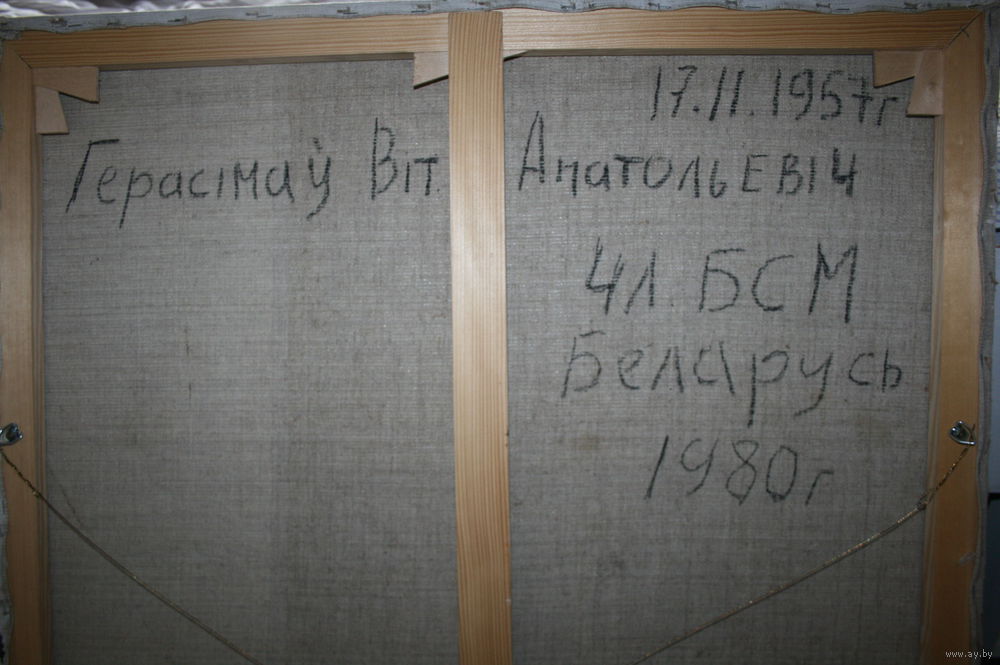 17.11.1957г
Герасімаў Віт. Анатольевіч
чл. БСМ
Беларусь
1980г
www.ay.by